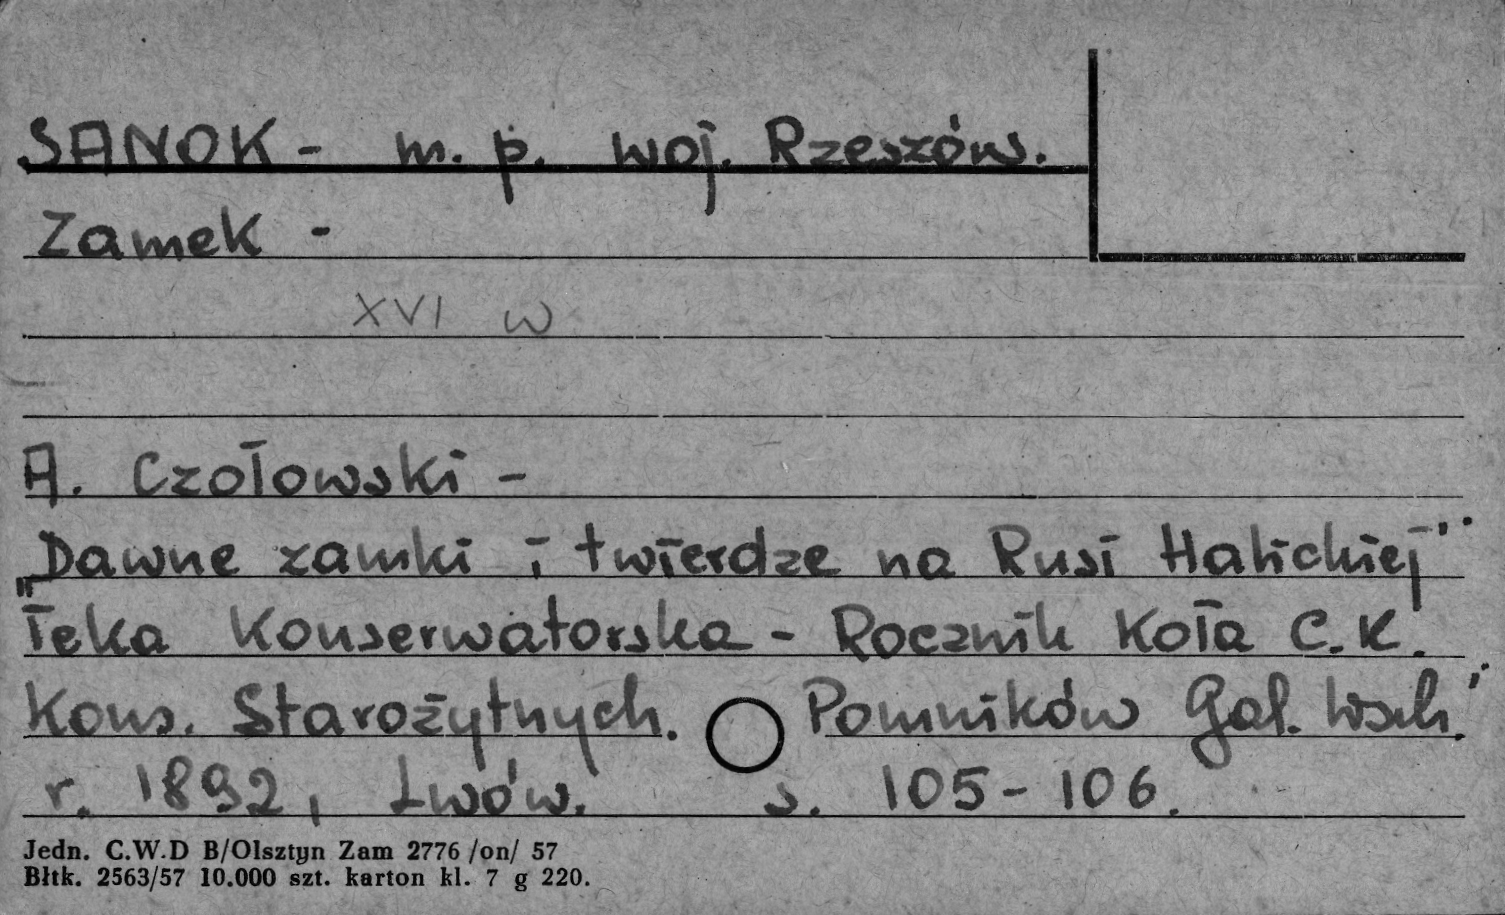 SANOK - m. p. woj. Rzeszów.
Zamek -
XVI w
A. Czołowski -
„Dawne zamki i twierdze na Rusi Halickiej"
Teka Konserwatorska - Rocznik Koła C.K.
Kons. Starożytnych. Pomników Gal. Wsch."
r. 1892, Lwów. s. 105-106.
Jedn. C.W.D B/Olsztyn Zam 2776 /on/ 57
Błtk. 2563/57 10.000 szt. karton kl. 7 g 220.